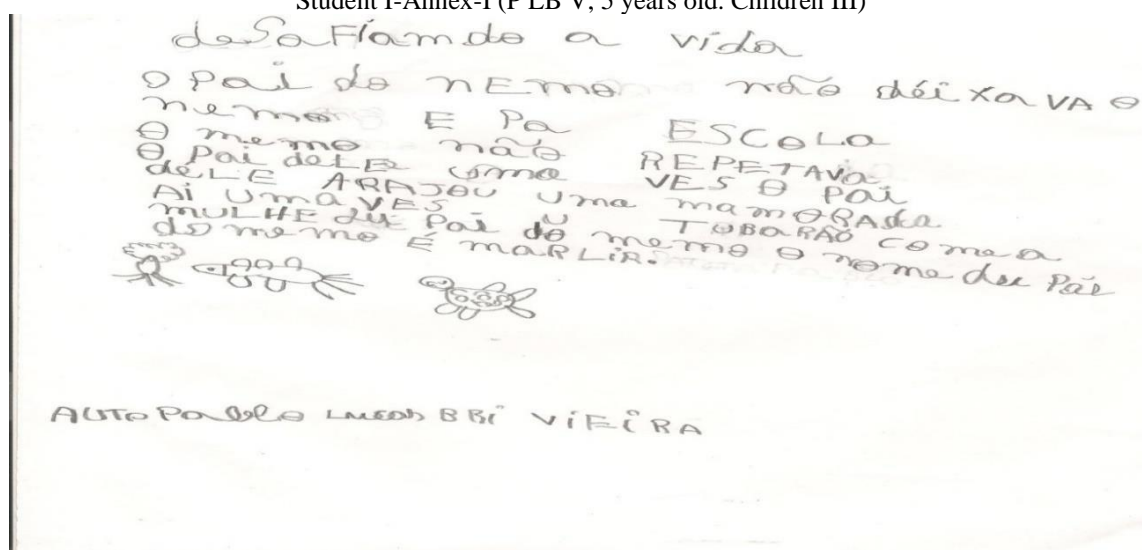 Student I-Annex-I (P LB V, 5 years old. Children III)
deSaFíamdo a vída
o Pai do nEmo não déixaVA o
nemo E Pa ESCOLA
o memo não REPETAVa
o pai deLE uma VES o pai
déLE ARAJOU uma mamoRAda
Ai UmaVES U TUBARÃO comea
MULHE du Pai do memo o nome du Pai
do memo É maRLiR.
AUTO Pablo BRi ViEiRA